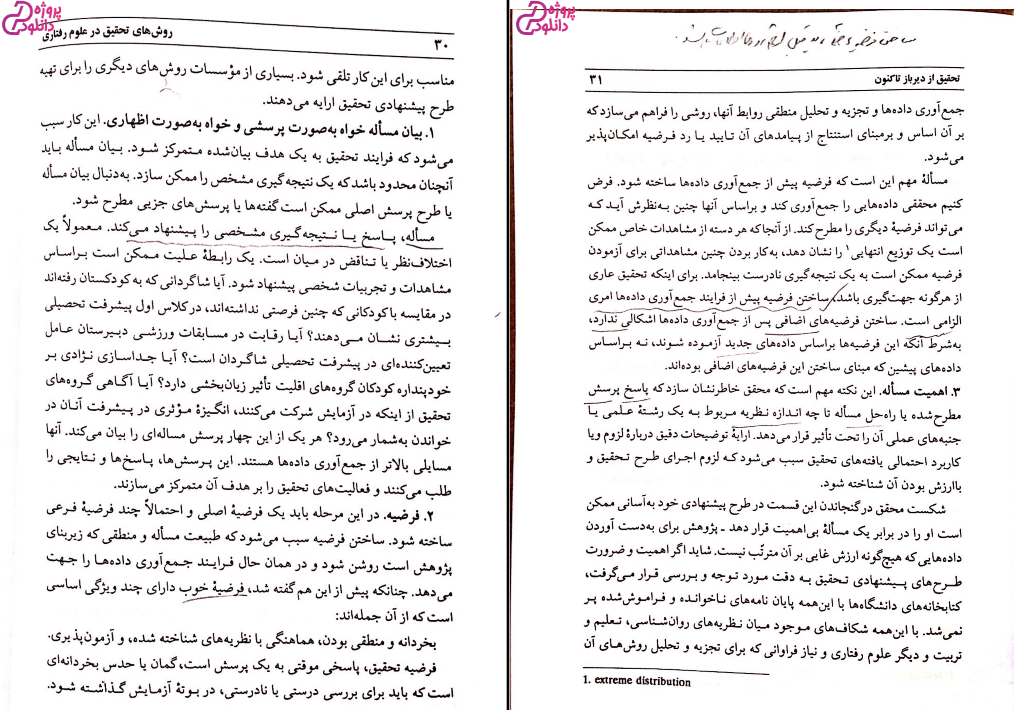 پروژه
دانلود
روش‌های تحقیق در علوم رفتاری
۳۰
مناسب برای این کار تلقی شود. بسیاری از مؤسسات روش‌های دیگری را برای تهیه
طرح پیشنهادی تحقیق ارایه می‌دهند.
۱. بیان مسأله خواه به‌صورت پرسشی و خواه به‌صورت اظهاری. این کار سبب
می‌شود که فرایند تحقیق به یک هدف بیان‌شده متمرکز شود. بیان مسأله باید
آنچنان محدود باشد که یک نتیجه‌گیری مشخص را ممکن سازد. به‌دنبال بیان مسأله
یا طرح پرسش اصلی ممکن است گفته‌ها یا پرسش‌های جزیی مطرح شود.
مسأله، پاسخ یا نتیجه‌گیری مشخصی را پیشنهاد می‌کند. معمولاً یک
اختلاف‌نظر یا تناقض در میان است. یک رابطهٔ علیت ممکن است براساس
مشاهدات و تجربیات شخصی پیشنهاد شود. آیا شاگردانی که به کودکستان رفته‌اند
در مقایسه با کودکانی که چنین فرصتی نداشته‌اند، در کلاس اول پیشرفت تحصیلی
بیشتری نشان می‌دهند؟ آیا رقابت در مسابقات ورزشی دبیرستان عامل
تعیین‌کننده‌ای در پیشرفت تحصیلی شاگردان است؟ آیا جداسازی نژادی بر
خودپنداره کودکان گروه‌های اقلیت تأثیر زیان‌بخشی دارد؟ آیا آگاهی گروه‌های
تحقیق از اینکه در آزمایش شرکت می‌کنند، انگیزهٔ مؤثری در پیشرفت آنان در
خواندن به‌شمار می‌رود؟ هر یک از این چهار پرسش مساله‌ای را بیان می‌کند. آنها
مسایلی بالاتر از جمع‌آوری داده‌ها هستند. این پرسش‌ها، پاسخ‌ها و نتایجی را
طلب می‌کنند و فعالیت‌های تحقیق را بر هدف آن متمرکز می‌سازند.
۲. فرضیه. در این مرحله باید یک فرضیهٔ اصلی و احتمالاً چند فرضیهٔ فرعی
ساخته شود. ساختن فرضیه سبب می‌شود که طبیعت مسأله و منطقی که زیربنای
پژوهش است روشن شود و در همان حال فرایند جمع‌آوری داده‌ها را جهت
می‌دهد. چنانکه پیش از این هم گفته شد، فرضیهٔ خوب دارای چند ویژگی اساسی
است که از آن جمله‌اند:
بخردانه و منطقی بودن، هماهنگی با نظریه‌های شناخته شده، و آزمون‌پذیری.
فرضیه تحقیق، پاسخی موقتی به یک پرسش است، گمان یا حدس بخردانه‌ای
است که باید برای بررسی درستی یا نادرستی، در بوتهٔ آزمایش گذاشته شود.
پروژه
دانلود
تحقیق از دیرباز تاکنون
۳۱
جمع‌آوری داده‌ها و تجزیه و تحلیل منطقی روابط آنها، روشی را فراهم می‌سازد که
بر آن اساس و برمبنای استنتاج از پیامدهای آن تایید یا رد فرضیه امکان‌پذیر
می‌شود.
مسألهٔ مهم این است که فرضیه پیش از جمع‌آوری داده‌ها ساخته شود. فرض
کنیم محققی داده‌هایی را جمع‌آوری کند و براساس آنها چنین به‌نظرش آید که
می‌تواند فرضیهٔ دیگری را مطرح کند. از آنجاکه هر دسته از مشاهدات خاص ممکن
است یک توزیع انتهایی۱ را نشان دهد، به‌کار بردن چنین مشاهداتی برای آزمودن
فرضیه ممکن است به یک نتیجه‌گیری نادرست بینجامد. برای اینکه تحقیق عاری
از هرگونه جهت‌گیری باشد، ساختن فرضیه پیش از فرایند جمع‌آوری داده‌ها امری
الزامی است. ساختن فرضیه‌های اضافی پس از جمع‌آوری داده‌ها اشکالی ندارد،
به‌شرط آنکه این فرضیه‌ها براساس داده‌های جدید آزموده شوند، نه براساس
داده‌های پیشین که مبنای ساختن این فرضیه‌های اضافی بوده‌اند.
۳. اهمیت مسأله. این نکته مهم است که محقق خاطرنشان سازد که پاسخ پرسش
مطرح‌شده یا راه‌حل مسأله تا چه اندازه نظریه مربوط به یک رشتهٔ علمی یا
جنبه‌های عملی آن را تحت تأثیر قرار می‌دهد. ارایهٔ توضیحات دقیق دربارهٔ لزوم ویا
کاربرد احتمالی یافته‌های تحقیق سبب می‌شود که لزوم اجرای طرح تحقیق و
باارزش بودن آن شناخته شود.
شکست محقق در گنجاندن این قسمت در طرح پیشنهادی خود به‌آسانی ممکن
است او را در برابر یک مسألهٔ بی‌اهمیت قرار دهد ـ پژوهش برای به‌دست آوردن
داده‌هایی که هیچ‌گونه ارزش غایی بر آن مترتّب نیست. شاید اگر اهمیت و ضرورت
طرح‌های پیشنهادی تحقیق به دقت مورد توجه و بررسی قرار می‌گرفت،
کتابخانه‌های دانشگاه‌ها با این‌همه پایان نامه‌های ناخوانده و فراموش‌شده پر
نمی‌شد. با این‌همه شکاف‌های موجود میان نظریه‌های روان‌شناسی، تعلیم و
تربیت و دیگر علوم رفتاری و نیاز فراوانی که برای تجزیه و تحلیل روش‌های آن
1. extreme distribution